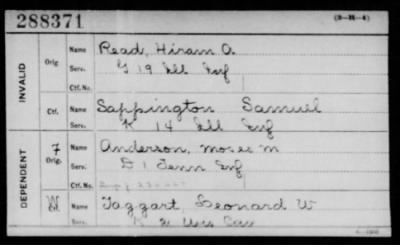 288371
(3-21-4)
INVALID
Orig.
Name Read, Hiram O.
Serv. G 19 Ill Inf
Ctf. No.
Ctf.
Name Sappington Samuel
Serv. K 14 Ill Inf
DEPENDENT
7
Orig.
Name Anderson, Moses M
Serv. D 1 Tenn Inf
Ctf. No.
W
Ctf.
Name Taggart, Leonard W
Serv. K 2 Cav